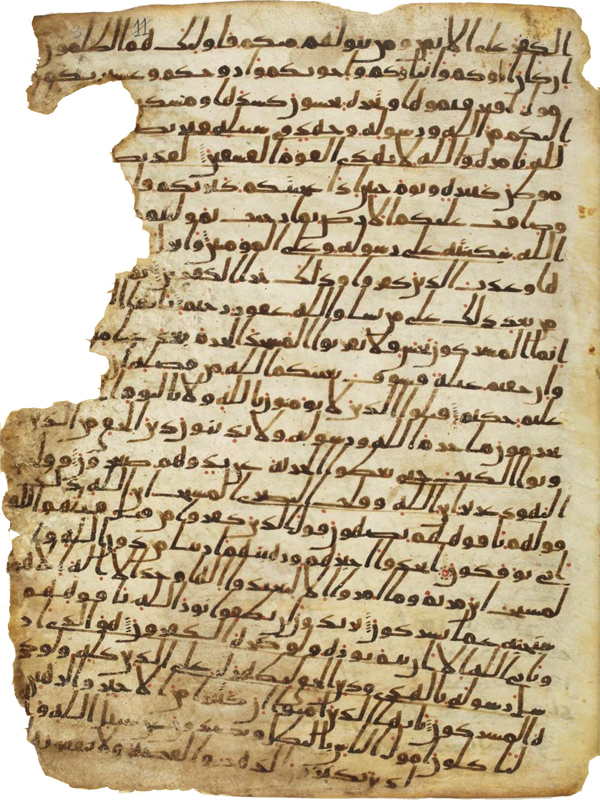 الكفر على الايمن ومن يتولهم منكم فاولئك هم الظلمون
ان كان اباوكم وابناوكم واخونكم وازوجكم وعشيرتكم و
مول اقترفتموها وتجرة تخشون كسدها ومسكن
اليكم من الله ورسوله وجهد في سبيله فتربصو
الله بامره والله لا يهدى القوم الفسقين لقد نصر
موطن كثيرة ويوم حنين اذ اعجبتكم كثرتكم فلم
وضاقت عليكم الارض بما رحبت ثم وليتم
الله سكينته على رسوله وعلى المومنين وانزل
ها وعذب الذين كفروا وذلك جزا الكفرين ثم
من بعد ذلك على من يشا والله غفور رحيم يايها ا
انما المشركون نجس فلا يقربوا المسجد الحرم بعد عامهم
وان خفتم عيلة فسوف يغنيكم الله من فضله ان
عليم حكيم قتلوا الذين لا يومنون بالله ولا باليوم ا
يحرمون ما حرم الله ورسوله ولا يدينون دين الحق من الذين
وتوا الكتب حتى يعطوا الجزية عن يد وهم صغرون وقالت
اليهود عزير ابن الله وقالت النصرى المسيح ابن الله ذلك
قولهم بافوههم يضهون قول الذين كفروا من قبل قتلهم الله
انى يوفكون اتخذوا احبرهم ورهبنهم اربابا من دون الله وا
لمسيح ابن مريم وما امروا الا ليعبدوا الها وحدا لا اله الا هو
سبحنه عما يشركون يريدون ان يطفوا نور الله بافوههم
ويابى الله الا ان يتم نوره ولو كره الكفرون هو الذى ا
رسل رسوله بالهدى ودين الحق ليظهره على الدين كله ولو كر
ه المشركون يايها الذين امنوا ان كثيرا من الاحبر والرهبن
ليا كلون امول الناس بالبطل ويصدون عن سبيل الله وا
لذين يكنزون الذهب والفضة ولا ينفقونها